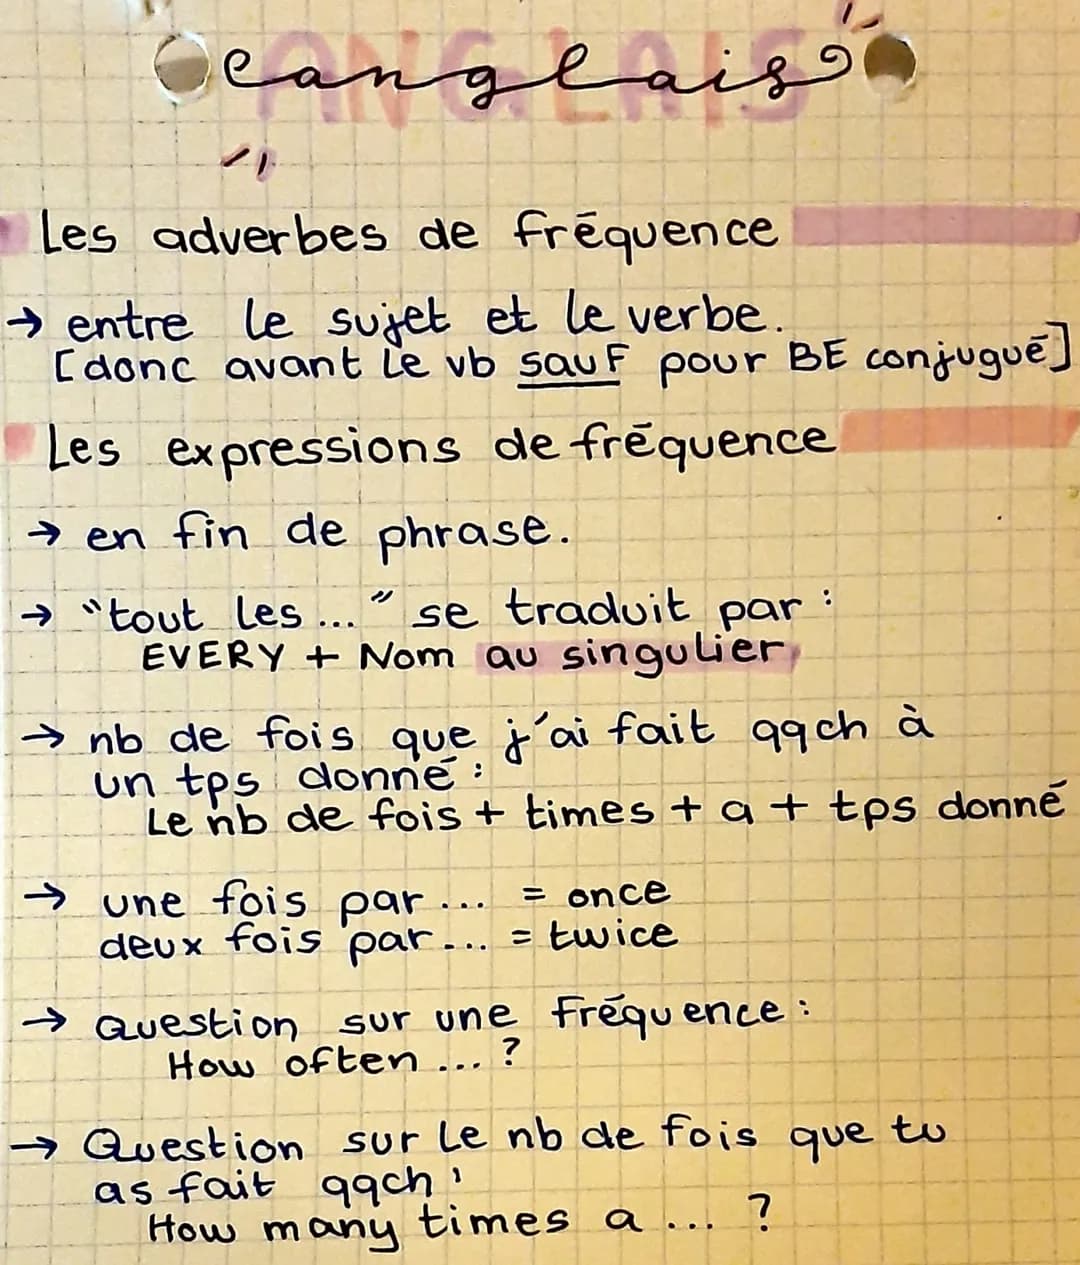 ANGLAIS
anglais
Les adverbes de fréquence
→ entre le sujet et le verbe.
[donc avant le vb sauf pour BE conjugué]
Les expressions de fréquence
→ en fin de phrase.
→ "tout les ..." se traduit par :
EVERY + Nom au singulier
→ nb de fois que j'ai fait qqch à
un tps donné :
Le nb de fois + times + a + tps donné
→ une fois par ... = once
deux fois par ... = twice
→ Question sur une fréquence :
How often ... ?
→ Question sur le nb de fois que tu
as fait qqch :
How many times a ... ?